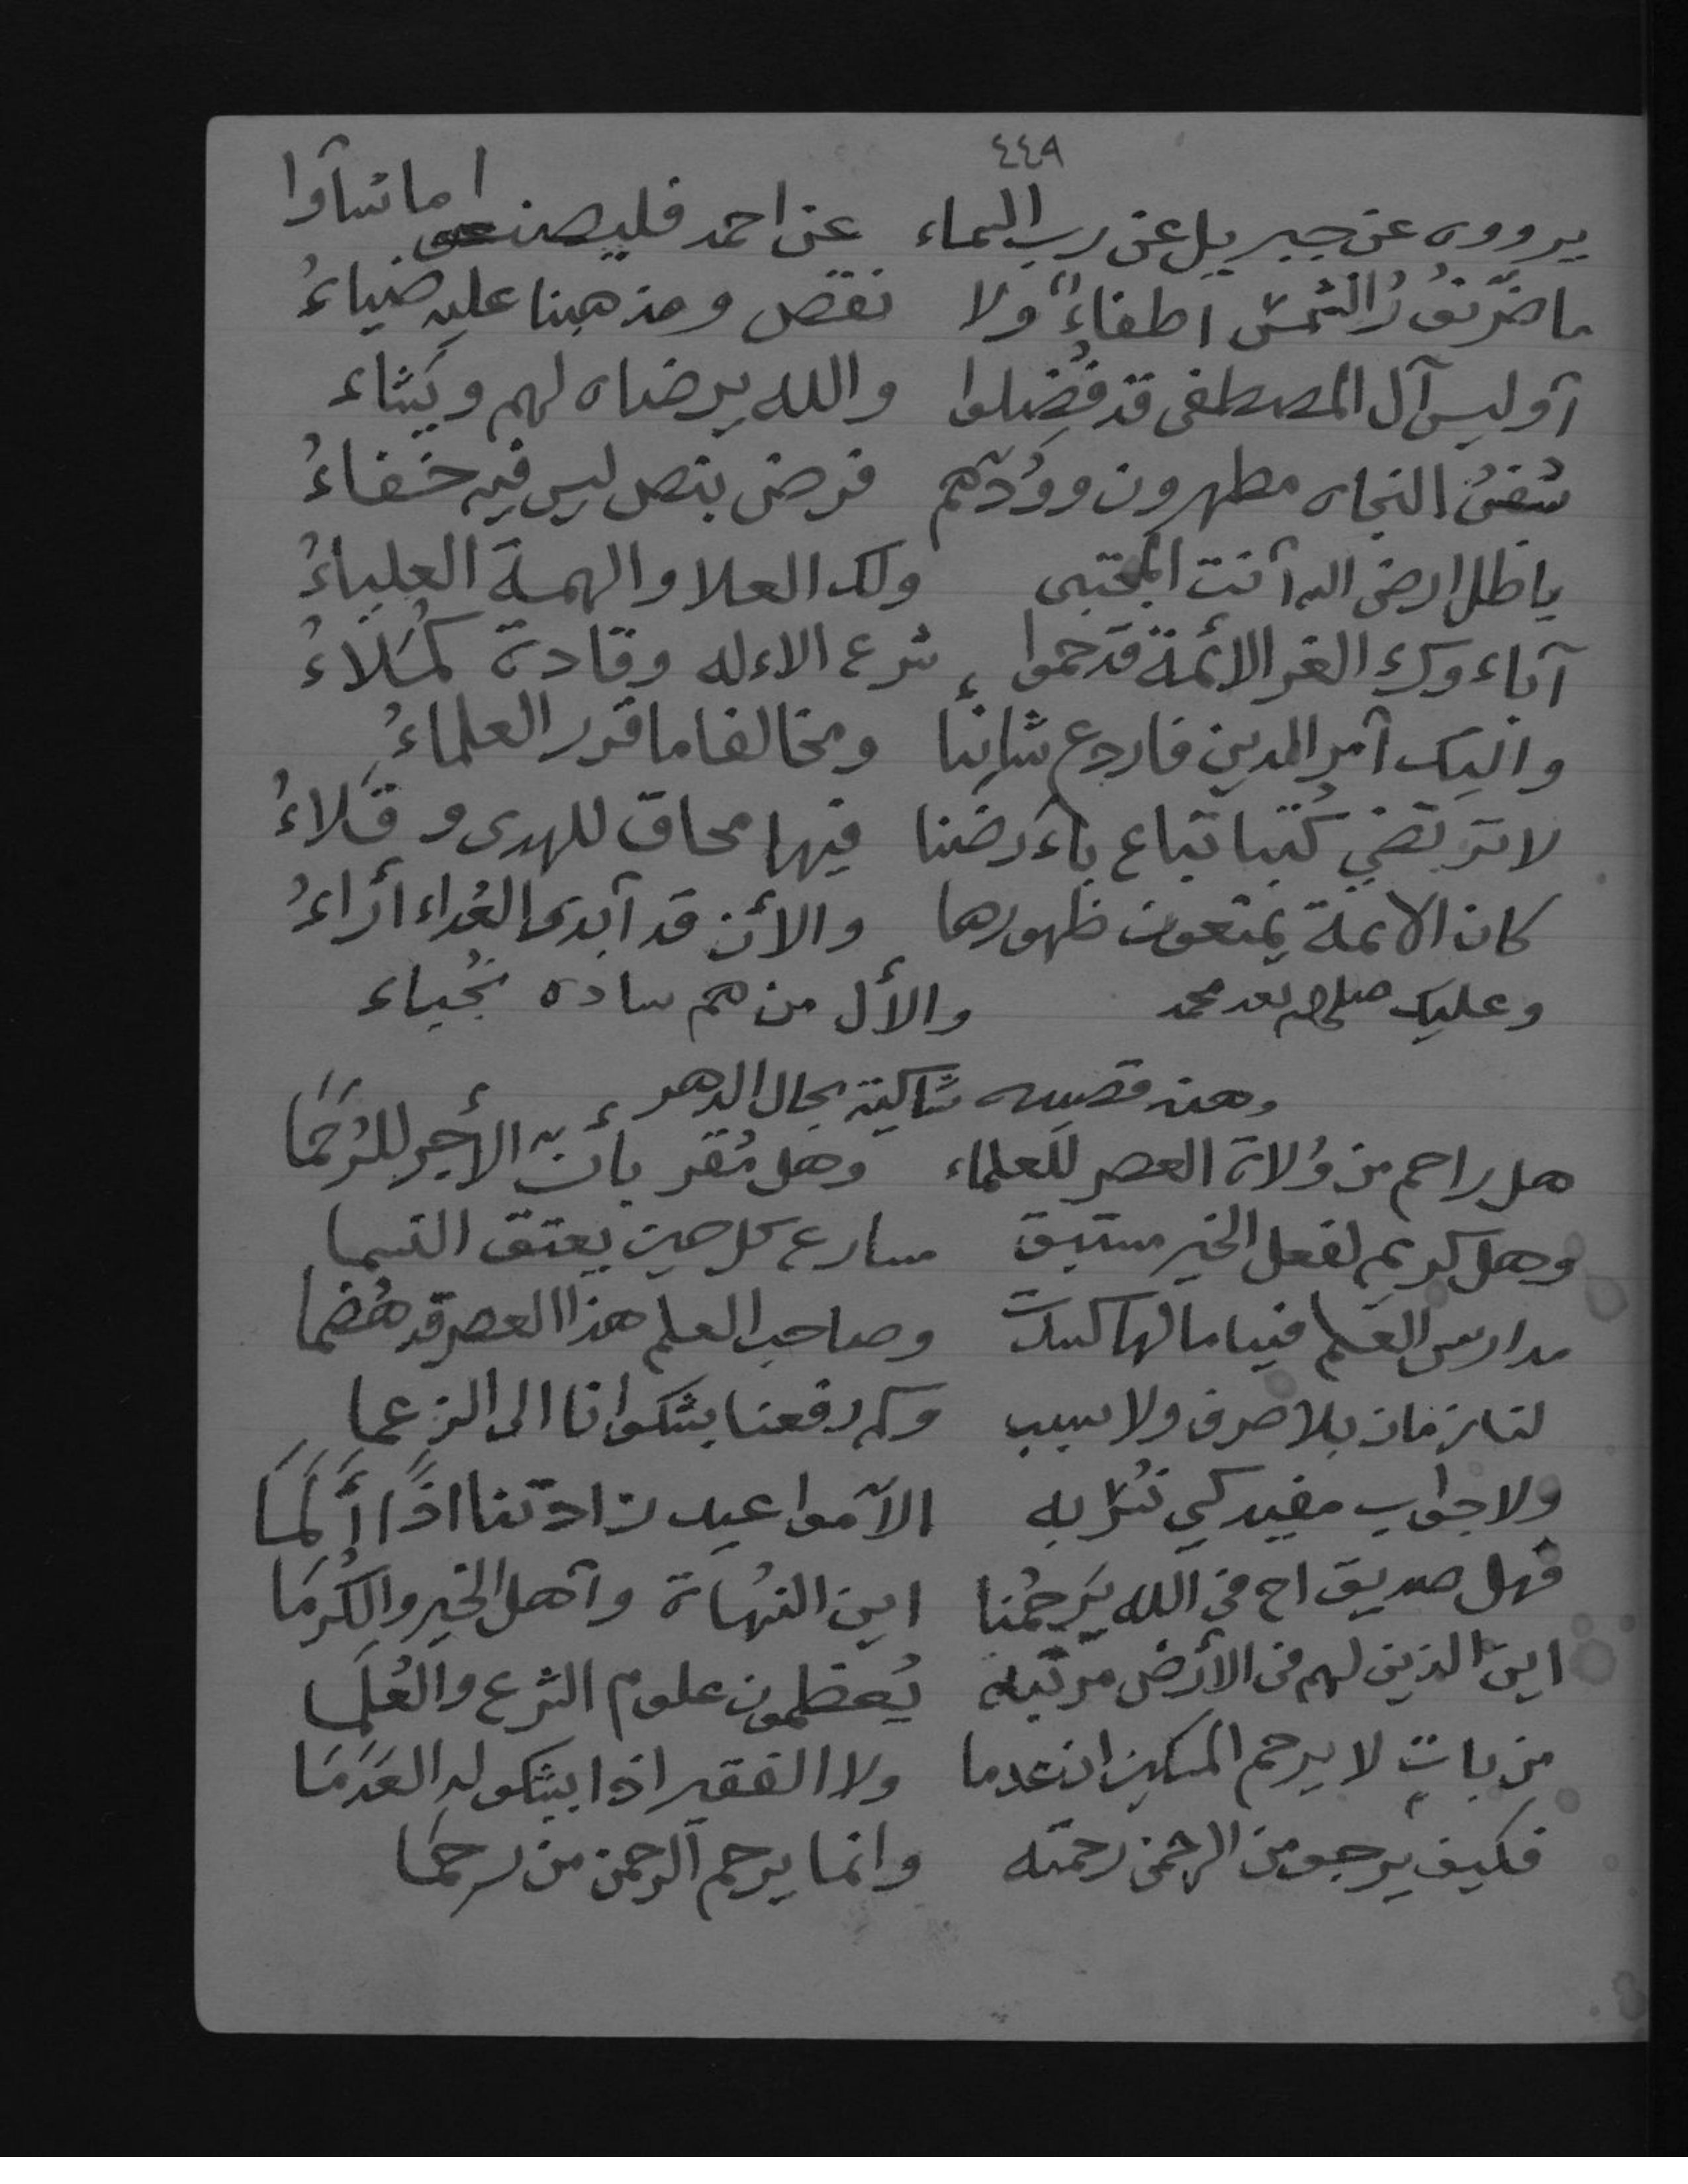 ٤٤٩
يروون عن جبريل عن رب السماء عن احمد فليصنعوا ما شآوا
ما ضرّ نورُ الشمس اطفاءٌ ولا نقص ومذهبنا عليه ضياءُ
آوليس آل المصطفى قد فُضلوا والله يرضاه لهم ويشاء
سُفنُ النجاه مطهرون وودّهم فرض بنص ليس فيه خفاءُ
يا ظل ارض الله آنت المجتبى ولك العلا والهمة العلياءُ
آباءوك الغر الائمة قد حموا شرع الاءله وقادة كُملاءُ
واليك آمر الدين فاردع شانئًا ومخالفا ما قرر العلماءُ
لا ترتضي كُتبا تباع بأَرضنا فيها محاق للهدى وقَلاءُ
كان الائمة يمنعون ظهورها والأن قد آبدى العُداء أراءُ
وعليك صلى الله بعد محمد والأل من هم ساده نُجباء
وهذه قصيده شاكية بحال الدهر
هل راحم من وُلاة العصر للعلماء وهل مُقر بأنّ الأجر للرُحَمَا
وهل كريم لفعل الخير مستبق مسارع كل حين يعتق النسما
مدارس العلم فينا ما لها كسدت وصاحب العلم هذا العصر قد هُضما
لنا زمان بلا صرف ولا سبب وكم رفعنا بشكوانا الى الزعما
ولا جواب مفيد كي نُسرّ به الآ مواعيد زادتنا اذًا أَلَمَا
فهل صديق اخ في الله يَرحمُنا اين النُهاة وآهل الخير والكُرمَا
اين الذين لهم في الأرض مرتبه يُعظمون علوم الشرع والعُلَما
من باتٍ لا يرحم المسكين ان عدما ولا الفقير اذا يشكو له العَدَمَا
فكيف يرجو من الرحمن رحمته وانما يرحم الرحمن من رحمَا